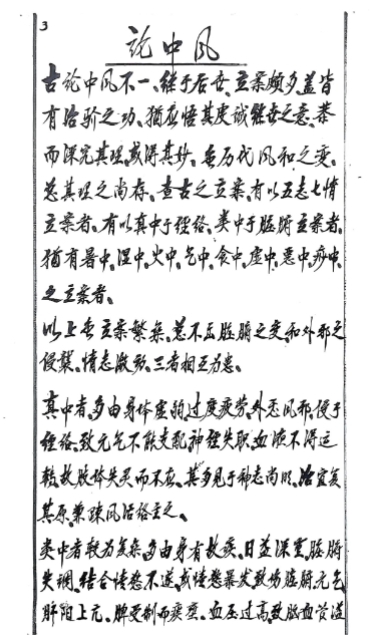 3
论中风
古论中风不一、继于后世、立案颇多、盖皆
有治验之功、犹应悟其虔诚继世之意、恭
而深究其理、或得其妙、每历代风和之变、
总其理之尚存、查古之立案、有以五志七情
立案者、有以真中于经络、类中于脏腑立案者、
犹有暑中、湿中、火中、气中、食中、虚中、恶中、痧中、
之立案者、
以上各立案繁杂、总不出脏腑之变、和外邪之
侵袭、情志激动、三者相互为患。
真中者、多由身体虚弱、过度疲劳、外感风邪、侵于
经络、致元气不能支配、神经失职、血液不得运
转、故肢体失灵而不应、其多见于神志尚明、治宜复
其原、兼疎风活络主之、
类中者较为复杂、多由身有故疾、日益深重、脏腑
失调、结合情怒不遂、或情怒暴发、致伤脏腑、元气
肝阳上亢、脾受制而痰壅、血压过高、致脑血管溢